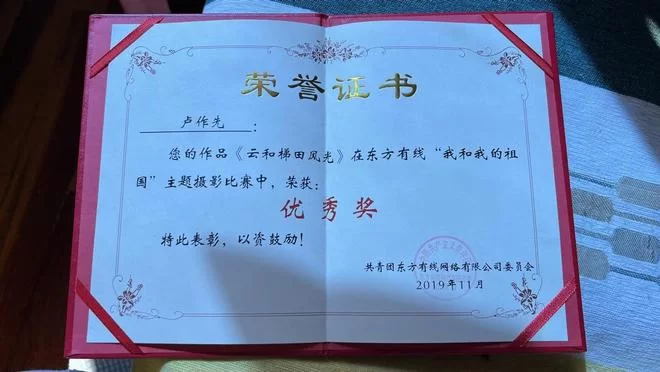 荣誉证书
卢作先：
您的作品《云和梯田风光》在东方有线“我和我的祖
国”主题摄影比赛中，荣获：
优秀奖
特此表彰，以资鼓励！
共青团东方有线网络有限公司委员会
2019年11月